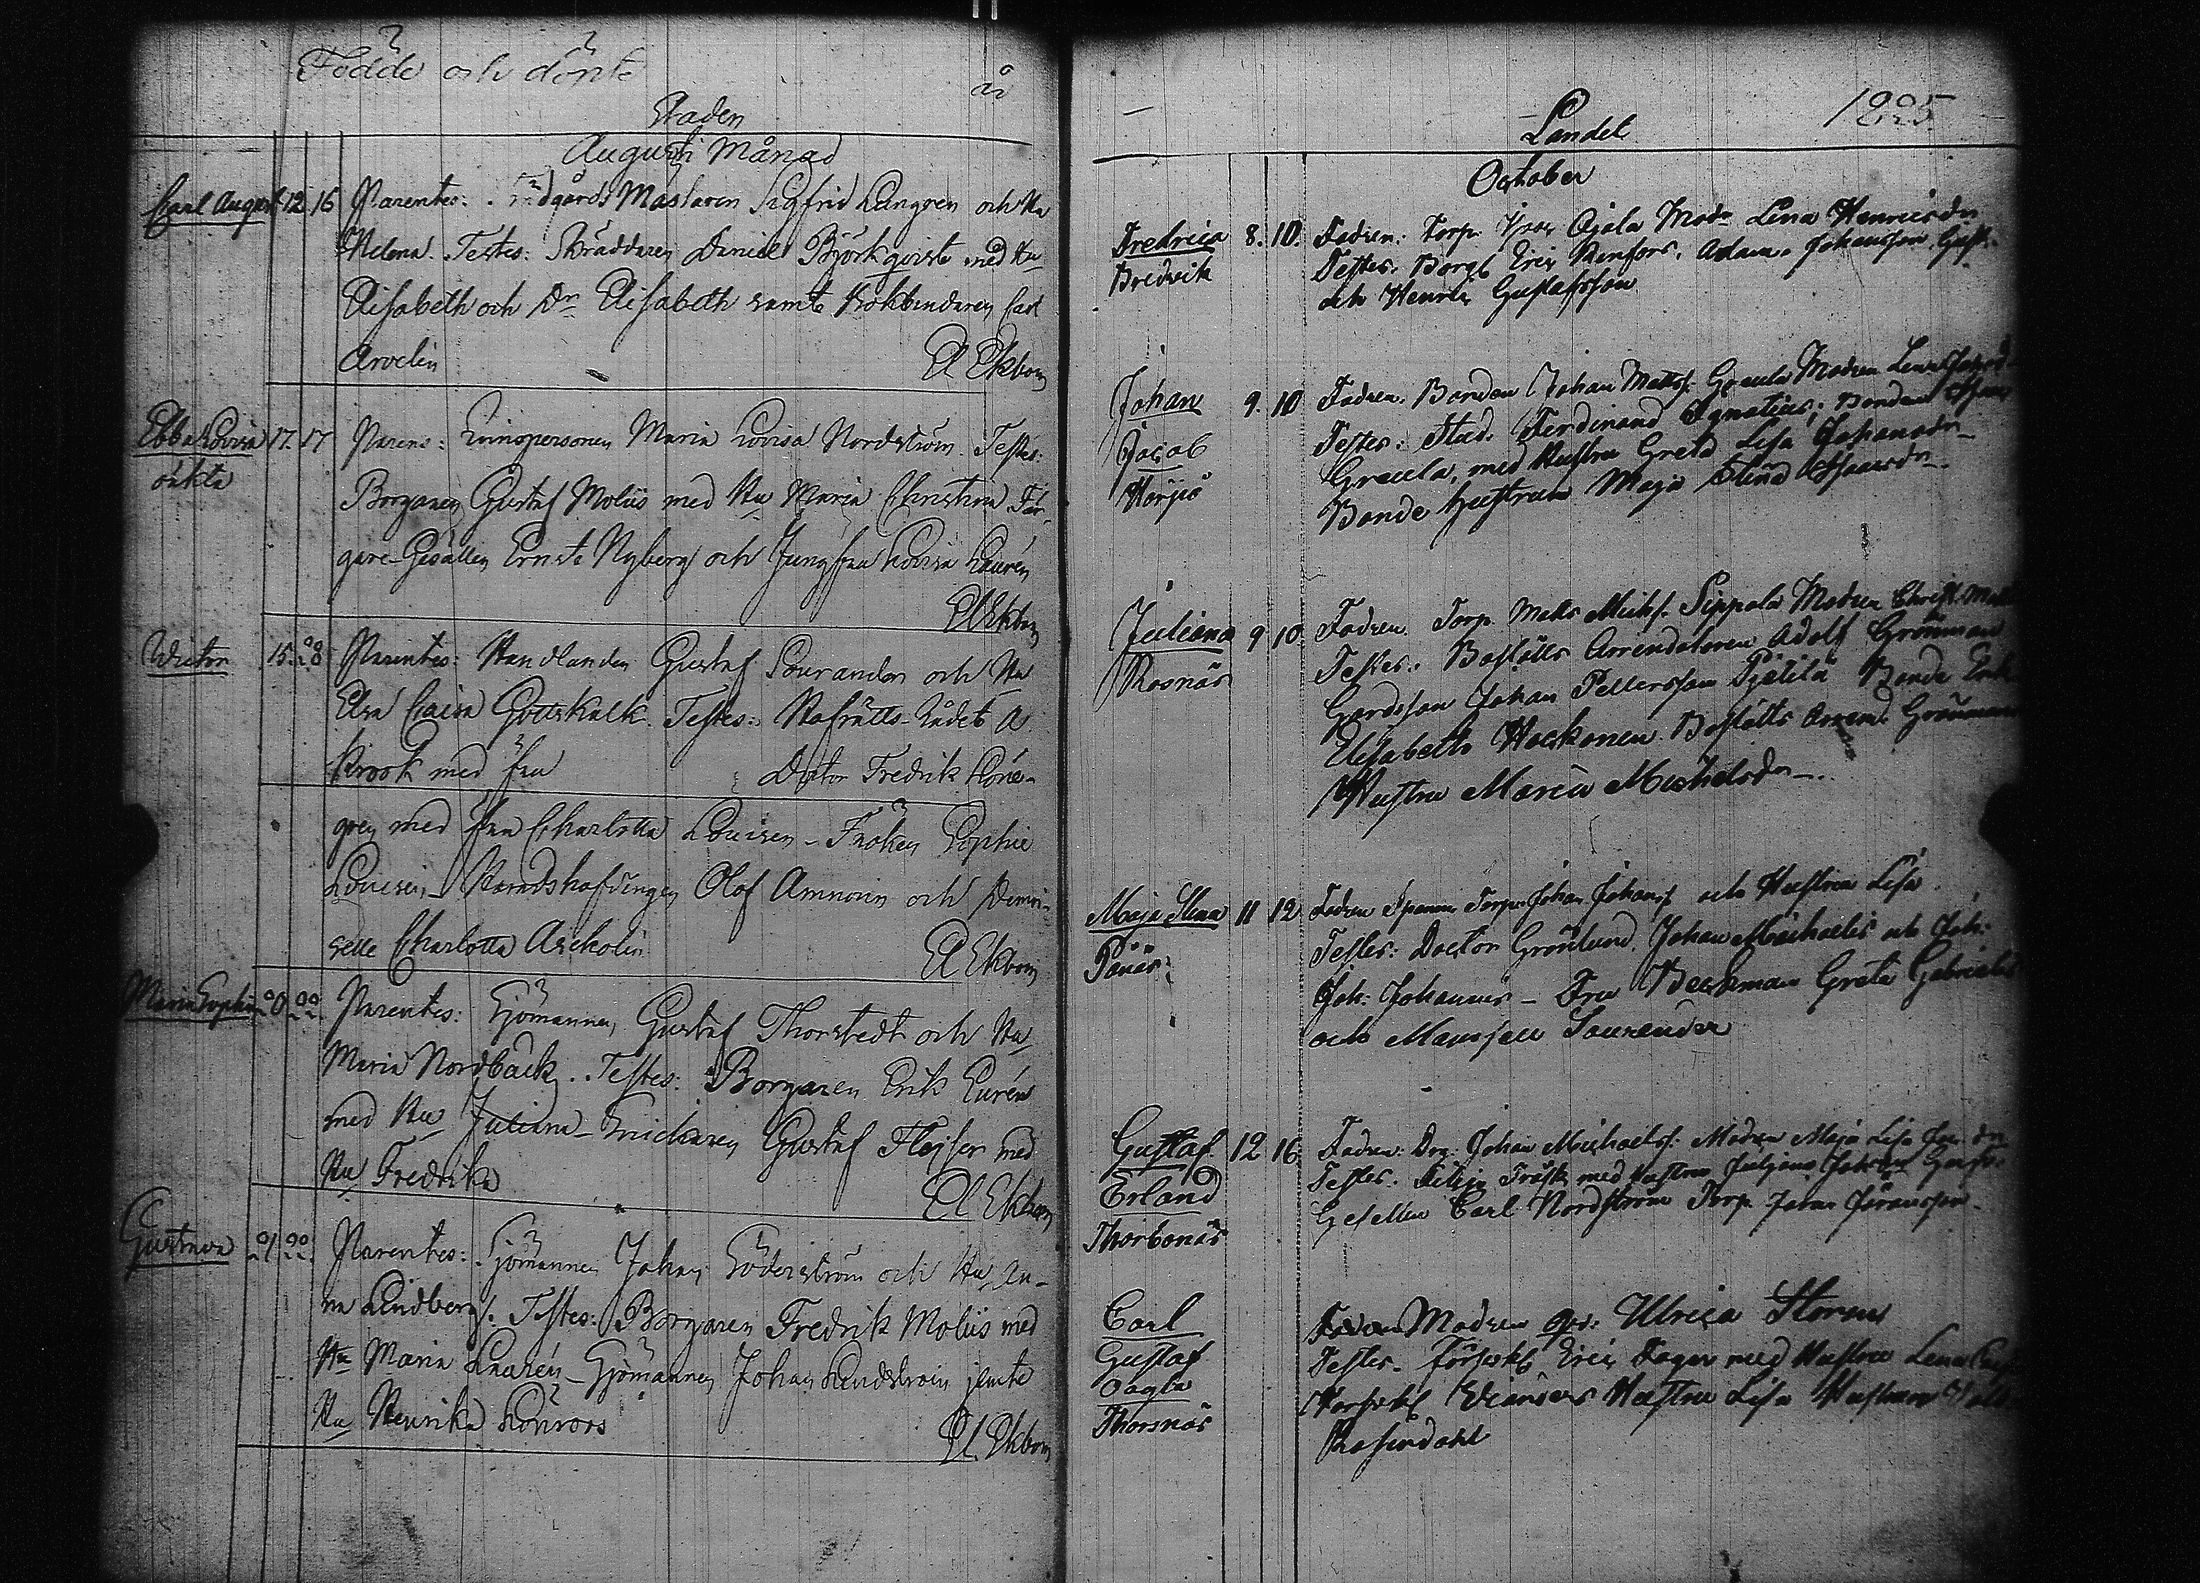 Födde och dönte
år
Staden
Augusti Månad
Carl August 12 16 Parentes: Trädgårds Mästaren Sigfrid Lungren och Hu
Helena. Testes: Skräddaren Daniel Björkqvist med Hu
Elisabeth och Dr Elisabeth samt Bokbindaren Carl
Arvelin El Ekbom
Ebba Lovisa 17. 17 Parens: Qvinspersonen Maria Lovisa Nordström. Testes:
oäkta
Borgaren Gustaf Moliis med Hu Maria Christina Fär-
gare-Gesällen Ernst Nyberg och Jungfru Lovisa Laurén
El Ekbom
Victor 15. 28 Parentes: Handlanden Gustaf Sourander och Hu
Elsa Caisa Gottskalk. Testes: Hofrätts-Rådet A.
Krook med fru Doctor Fredrik Löne-
gren med fru Charlotta Louisen - Fröken Sophie
Häradshöfdingen Olof Amnorin och Demoi-
selle Charlotta Ascholin El Ekbom
Maria Sophia 20 22. Parentes: Sjömannen Gustaf Thorstedt och Hu
Maria Nordbäck. Testes: Borgaren Erik Eurén
med Hu Juliana - Snickaren Gustaf Flejser med
Hu Fredrika El Ekbom
Gustava 21 22. Parentes: Sjömannen Johan Söderström och Hu An-
na Lindberg. Testes: Borgaren Fredrik Moliis med
Hu Maria Laurén - Sjömannen Johan Lindström jemte
Hu Henrika Lönroos El Ekbom
1825
Landet
October
Fredrica 8. 10. Fadren: Torp. Ojala Modr Lena Henricsdr
Bredvik Testes. Borg. Eric Renfors. Adam Johansson
och Henric Gustafsson
Johan 9. 10 Fadren. Bonden Johan Matts. Greula Modren Lena
Jacob Testes: Stud. Ferdinand Ignatius; Bonden
Greula, med Hustru Greta Lisa Johansdr
Bonde Hustrun Maja Stina
Juliana 9 10. Fadren Torp. Matts Michs. Sippola Modren Christ.
Rosnäs Testes: Boställs Arrendatoren Adolf Grönman
Gårdsson Johan Pettersson Bonde
Elisabeth Hockonen. Boställs Arrend. Grönman
Hustru Maria Michelsdr
Maja Stina 11 12 Fadren Torp. Johan Johans. och Hustru Lisa
Testes: Doctor Grönlund. Johan Michaelis och Joh:
Joh: Johannes - Fru Beckman Greta Gabriels
och Mamsell Sourander
Gustaf 12 16 Fadren: Drg. Johan Michaels: Modren Maja Lisa
Erland Testes. Träsk med Hustru Juliana
Thorbonäs Gesellen Carl Nordström Torp. Johan Göransson
Carl Modren qvs: Ulrica Storm
Gustaf Testes. Eric Fager med Hustru Lena
Oagta Hustru Lisa
Thorsnäs Rosendahl